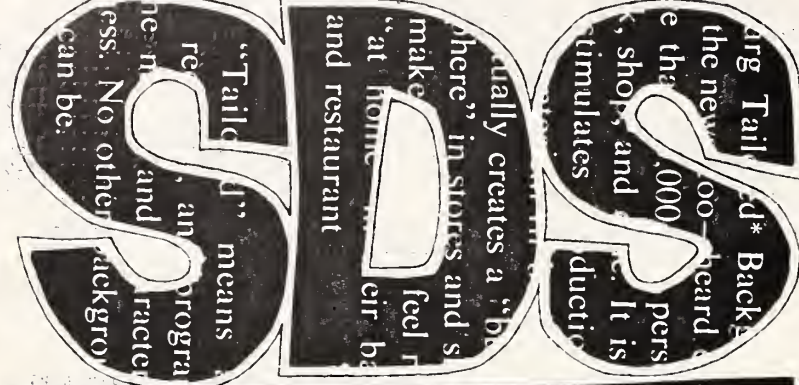 SDS
arg Tail ed* Backg
the new oo-heard
e tha ,000 pers
k, shop, and It is
stimulates ductio
tually creates a "b
phere" in stores and s
make feel r
"at home eir b
and restaurant
"Tailo d" means
re , an progra
he m and racte
ess. No other ackgro
can be.